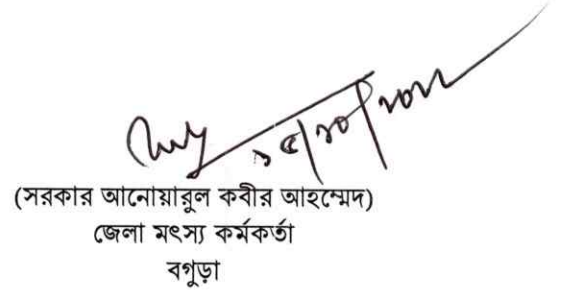 ১৫/১০/২০২২
(সরকার আনোয়ারুল কবীর আহম্মেদ)
জেলা মৎস্য কর্মকর্তা
বগুড়া